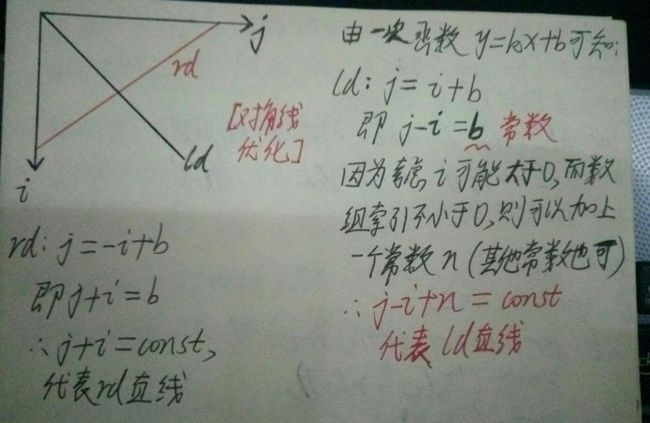 j
rd
[对角线
优化]
ld
i
rd: j=-i+b
即j+i=b
∴j+i=const,
代表rd直线
由一次函数y=kx+b可知:
ld: j=i+b
即 j-i=b 常数
因为考虑i可能大于0,而数
组索引不小于0,则可以加上
一个常数n(其他常数也可)
∴j-i+n=const
代表ld直线